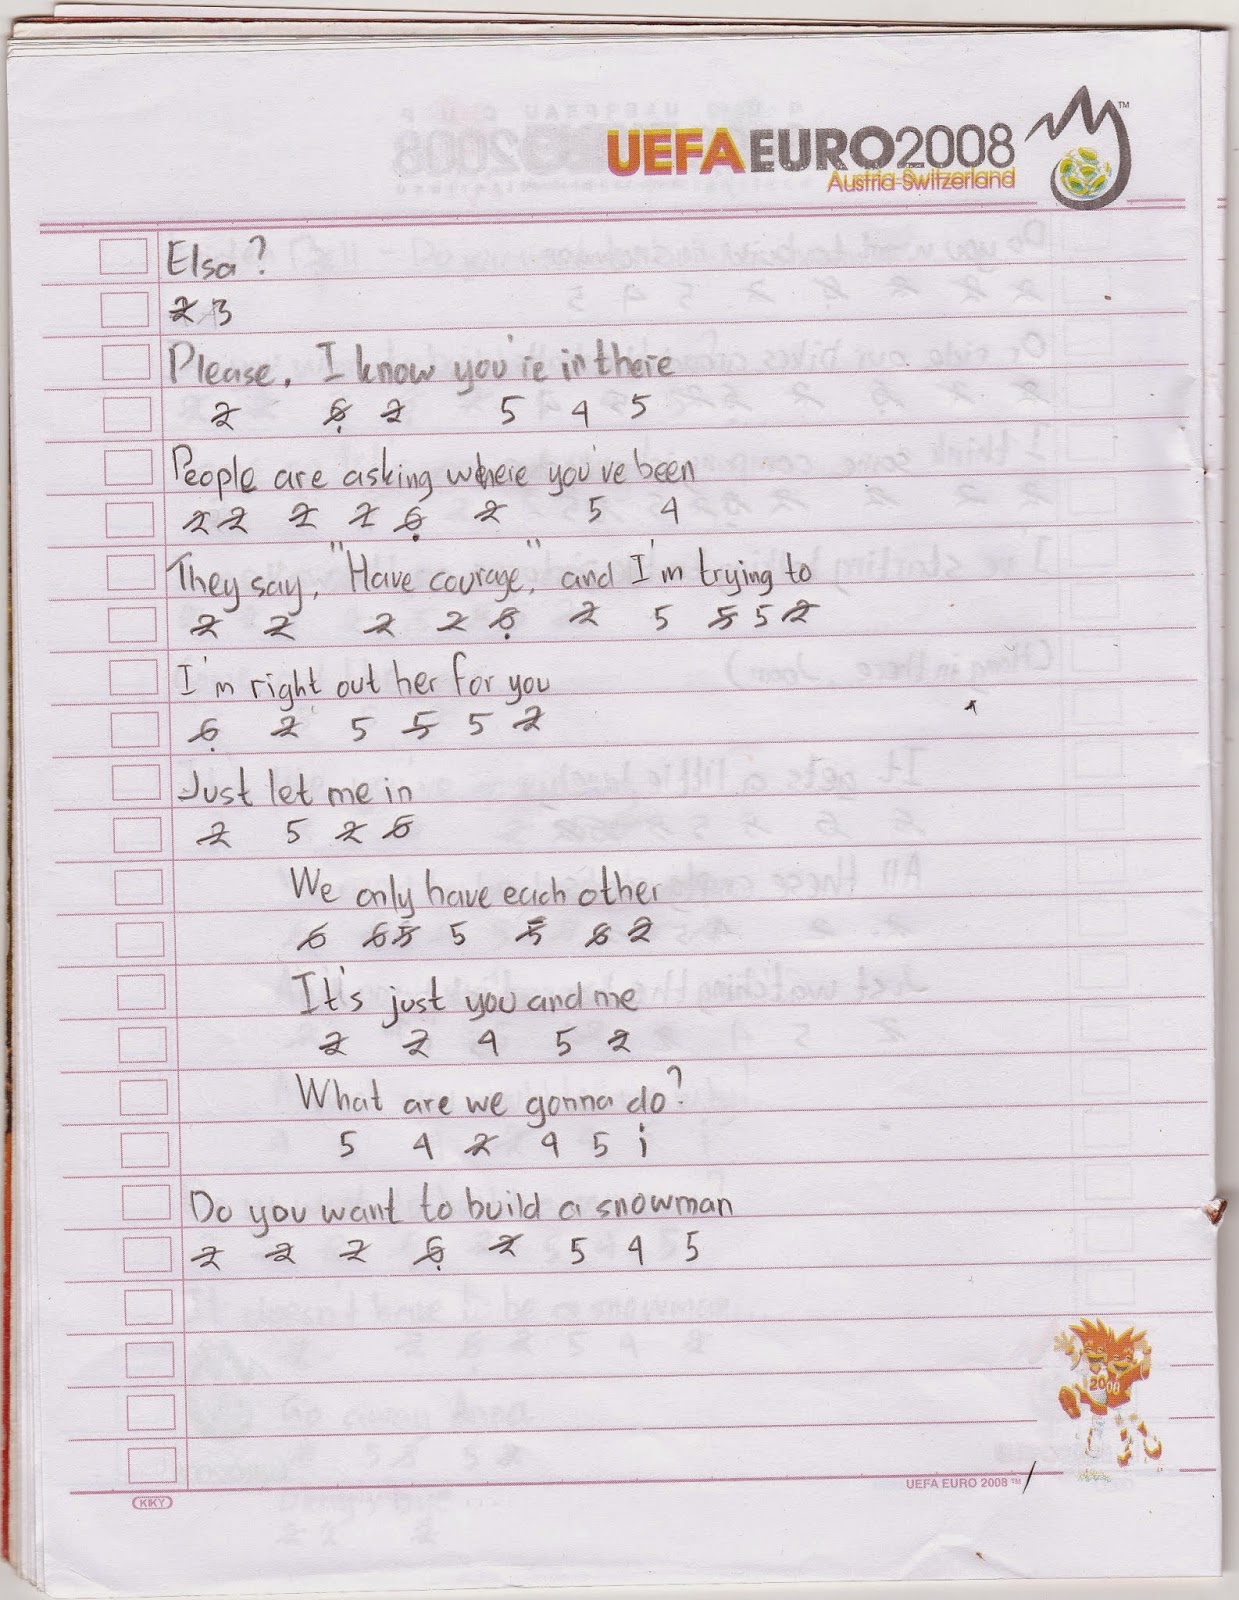 UEFA EURO2008 TM
Austria-Switzerland
Elsa?
2̸ 3
Please, I know you're in there
2̸ 6̸̣ 2̸ 5 4 5
People are asking where you've been
2̸ 2̸ 2̸ 2̸ 6̸̣ 2̸ 5 4
They say, "Have courage," and I'm trying to
2̸ 2̸ 2̸ 2̸ 6̸̣ 2̸ 5 5̸ 5 2̸
I'm right out her for you
6̸̣ 2̸ 5 5̸ 5 2̸
Just let me in
2̸ 5 2̸ 6̸
We only have each other
6̸ 6̸ 5̸ 5 5̸ 6̸ 2̸
It's just you and me
2̸ 2̸ 4 5 2̸
What are we gonna do?
5 4 2̸ 4 5 i
Do you want to build a snowman
2̸ 2̸ 2̸ 6̸̣ 2̸ 5 4 5
2008
UEFA EURO 2008 TM
KIKY